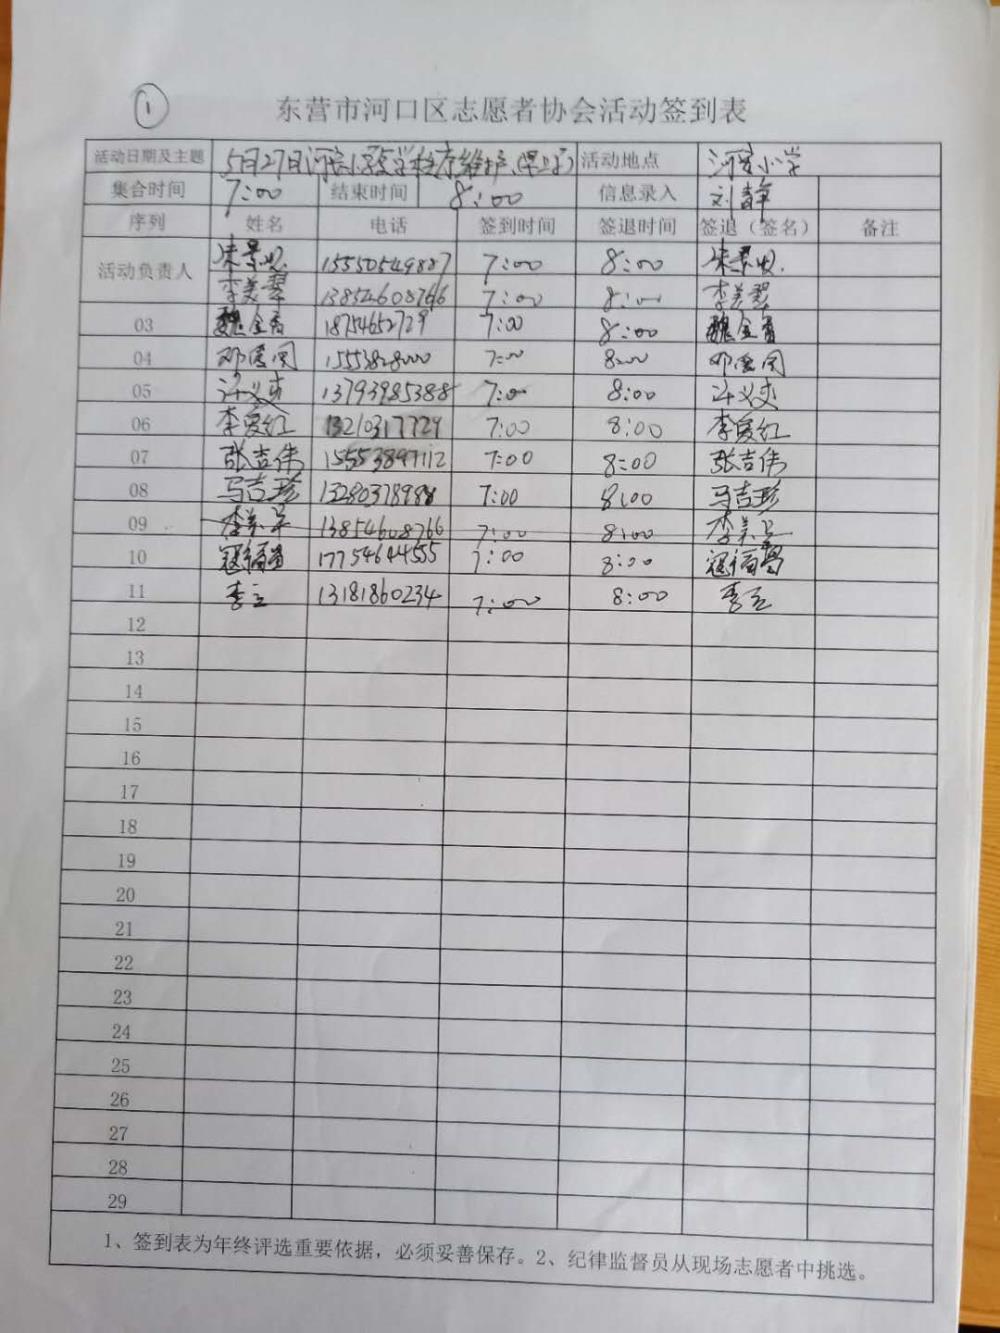 ①
东营市河口区志愿者协会活动签到表
活动日期及主题 5月27日河安小学 秩序维护(早上) 活动地点 河安小学
集合时间 7:00 结束时间 8:00 信息录入 刘静
序列 姓名 电话 签到时间 签退时间 签退（签名） 备注
活动负责人 15550549887 7:00 8:00
李美翠 13854608766 7:00 8:00 李美翠
03 魏金香 18754652729 7:00 8:00 魏金香
04 邓爱国 15553828000 7:00 8:00 邓爱国
05 许义虎 13793985388 7:00 8:00 许义虎
06 李爱红 13210317729 7:00 8:00 李爱红
07 张吉伟 15553897112 7:00 8:00 张吉伟
08 马吉珍 13280378988 7:00 8:00 马吉珍
09 李美 13854608766 7:00 8:00 李美
10 寇福 17754644555 7:00 8:00 寇福
11 李立 13181860234 7:00 8:00 李立
12
13
14
15
16
17
18
19
20
21
22
23
24
25
26
27
28
29
1、签到表为年终评选重要依据，必须妥善保存。2、纪律监督员从现场志愿者中挑选。